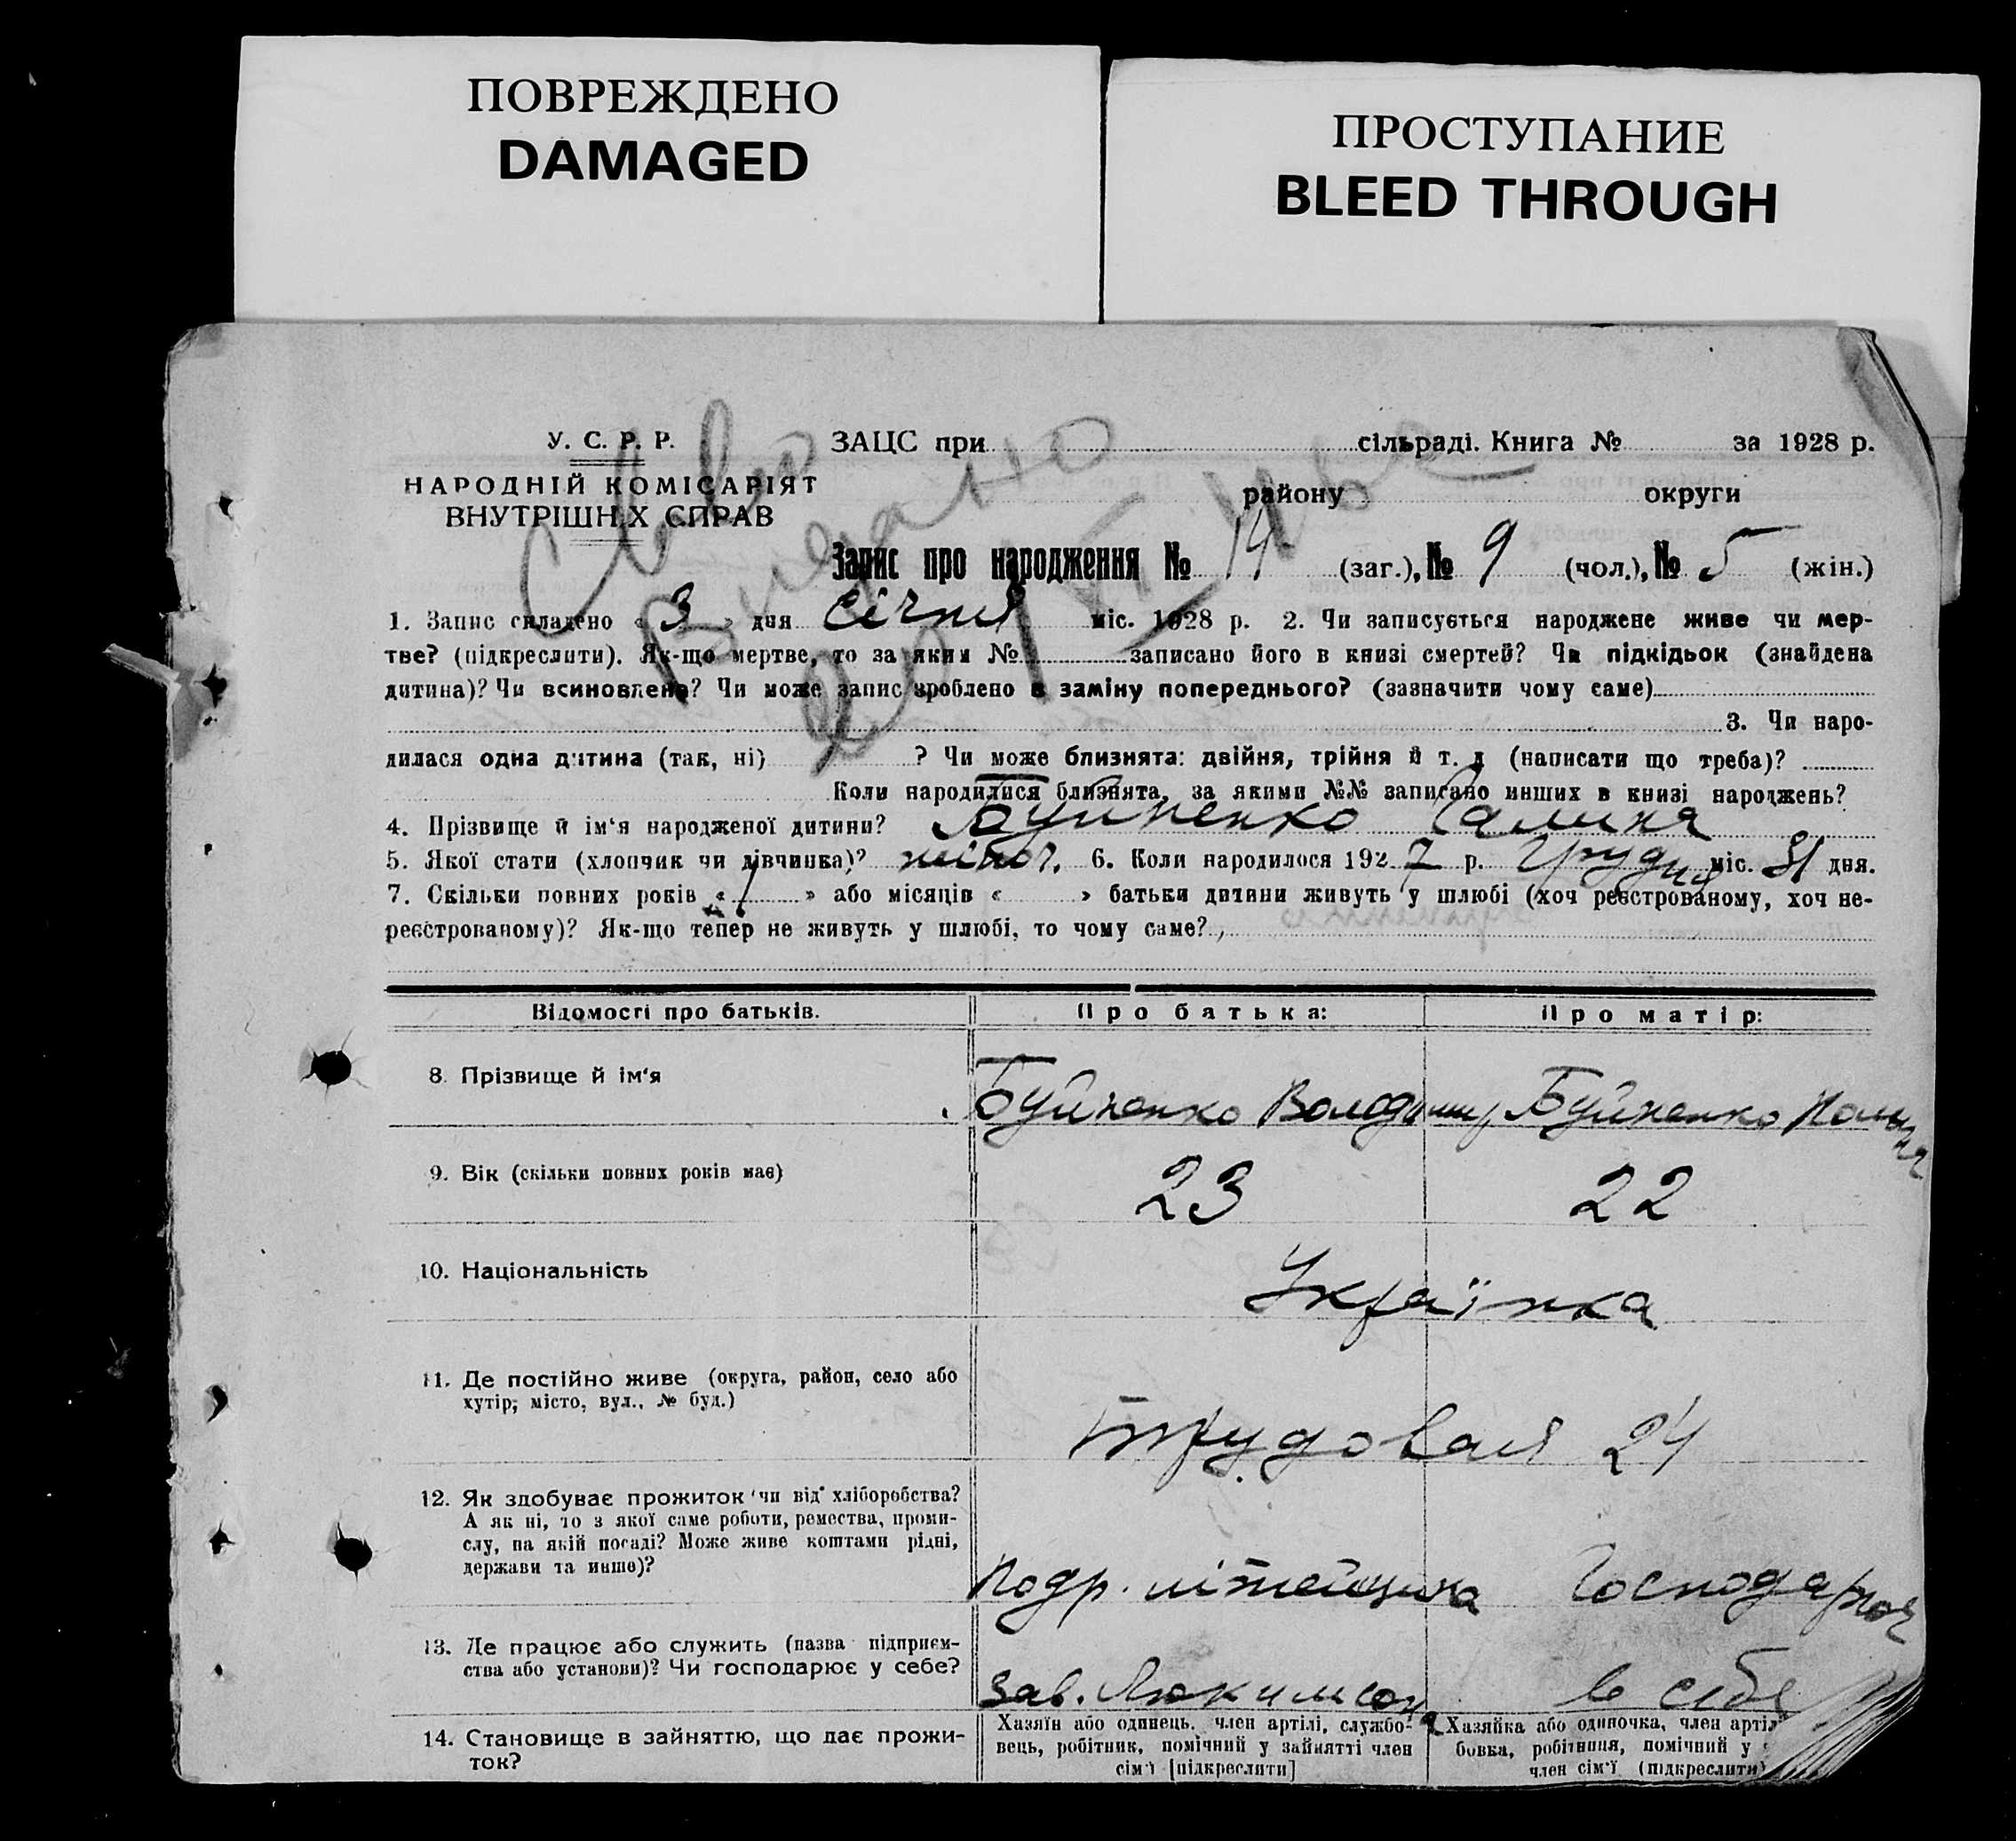 ПОВРЕЖДЕНО
DAMAGED
ПРОСТУПАНИЕ
BLEED THROUGH
У. С. Р. Р.
НАРОДНІЙ КОМІСАРІЯТ
ВНУТРІШНІХ СПРАВ
ЗАЦС при сільраді. Книга № за 1928 р.
району округи
Запис про народження № 14 (заг.), № 9 (чол.), № 5 (жін.)
1. Запис складено « 3 » дня Січня міс. 1928 р. 2. Чи записується народжене живе чи мер-
тве? (підкреслити). Як-що мертве, то за яким № записано його в книзі смертей? Чи підкідьок (знайдена
дитина)? Чи всиновлена? Чи може запис зроблено в заміну попереднього? (зазначити чому саме)
3. Чи наро-
дилася одна дитина (так, ні) ? Чи може близнята: двійня, трійня й т. д (написати що треба)?
Коли народилися близнята, за якими №№ записано инших в книзі народжень?
4. Прізвище й ім‘я народженої дитини? Буйненко Галина
5. Якої стати (хлопчик чи дівчинка)? жіноч. 6. Коли народилося 1927 р. Грудня міс. 31 дня.
7. Скільки повних років « 1 » або місяців « » батьки дитини живуть у шлюбі (хоч реєстрованому, хоч не-
реєстрованому)? Як-що тепер не живуть у шлюбі, то чому саме?
Відомості про батьків. Про батька: Про матір:
8. Прізвище й ім‘я Буйненко Володимир Буйненко Полина
9. Вік (скільки повних років має) 23 22
10. Національність Українка
11. Де постійно живе (округа, район, село або
хутір; місто, вул., № буд.)
Трудовая 24
12. Як здобуває прожиток чи від хліборобства?
А як ні, то з якої саме роботи, ремества, проми-
слу, на якій посаді? Може живе коштами рідні,
держави та инше)?
подр. літейщика Господарюч
13. Де працює або служить (назва підприєм-
ства або установи)? Чи господарює у себе?
Зав. в себе
14. Становище в зайняттю, що дає прожи-
ток?
Хазяїн або одинець, член артілі, службо-
вець, робітник, помічний у зайнятті член
сім‘ї [підкреслити]
Хазяйка або одиночка, член артіл
бовка, робітниця, помічний у
член сім‘ї (підкреслити)